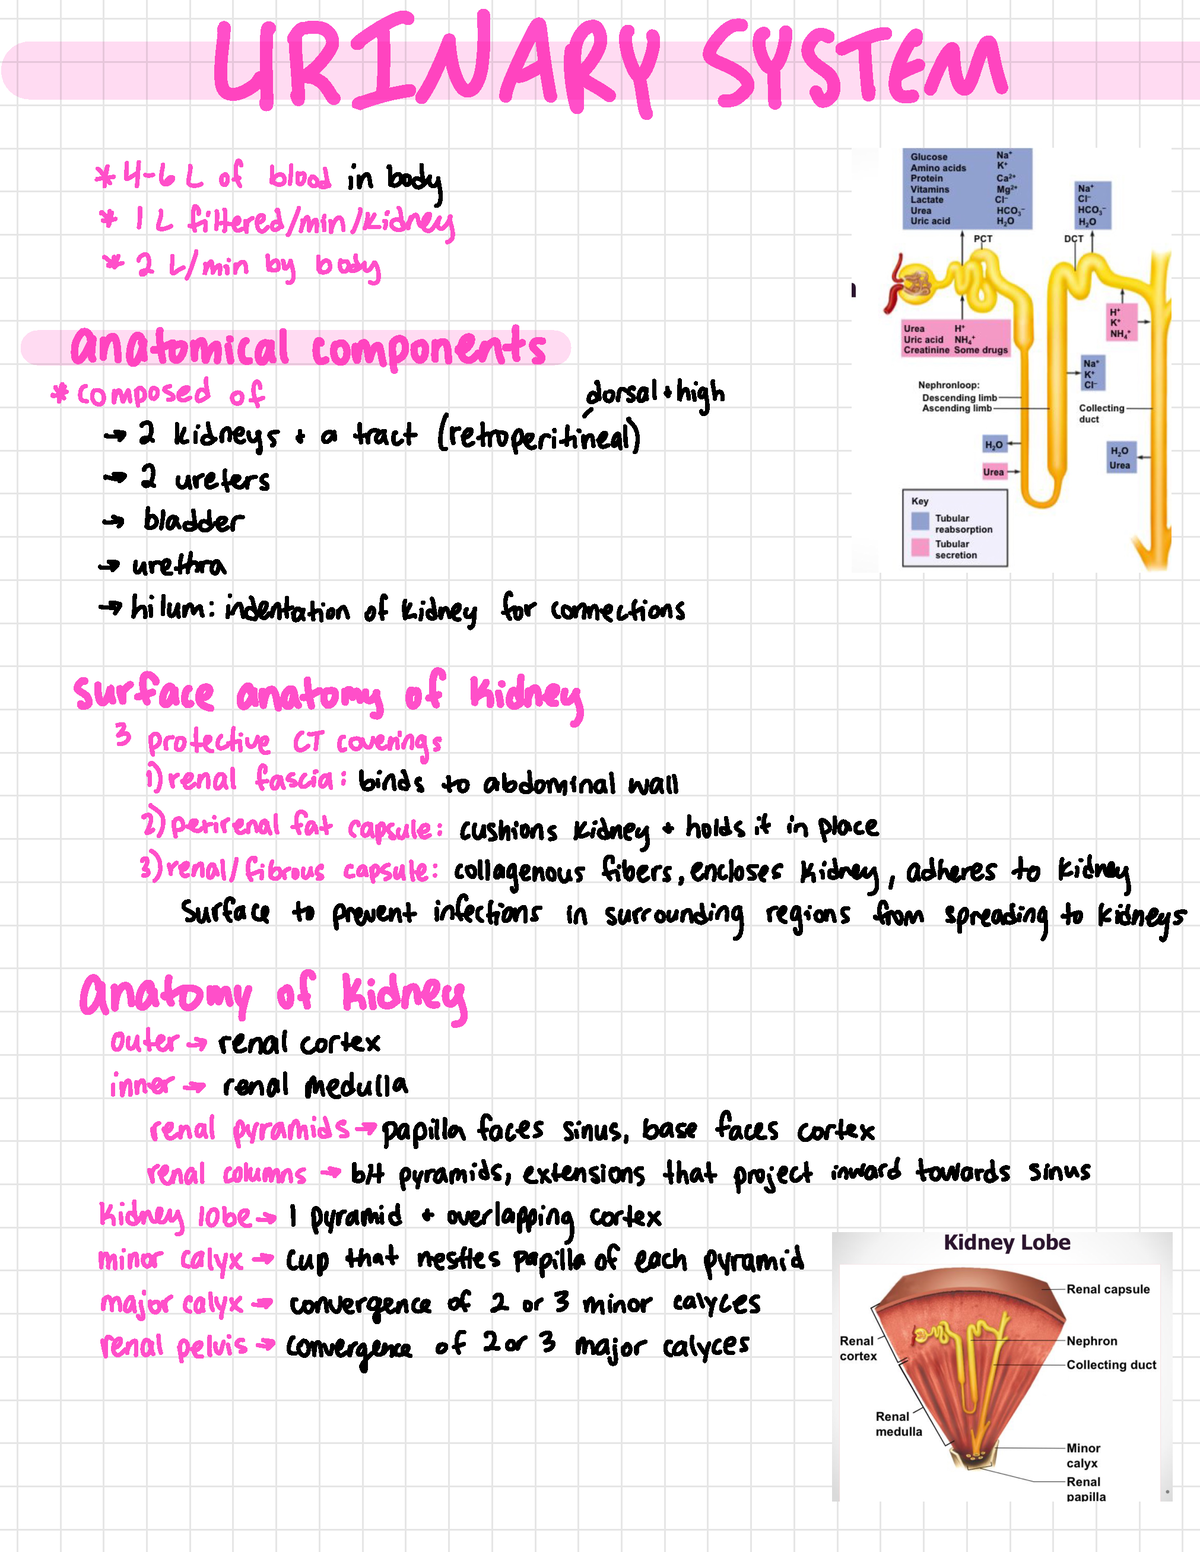 URINARY SYSTEM
* 4-6 L of blood in body
* 1 L filtered/min/kidney
* 2 L/min by body
Glucose Na⁺
Amino acids K⁺
Protein Ca²⁺
Vitamins Mg²⁺
Lactate Cl⁻
Urea HCO₃⁻
Uric acid H₂O
Na⁺
Cl⁻
HCO₃⁻
H₂O
PCT
DCT
Urea H⁺
Uric acid NH₄⁺
Creatinine Some drugs
H⁺
K⁺
NH₄⁺
Na⁺
K⁺
Cl⁻
Nephronloop:
Descending limb
Ascending limb
Collecting
duct
H₂O
Urea
H₂O
Urea
Key
Tubular
reabsorption
Tubular
secretion
anatomical components
* composed of
dorsal + high
→ 2 kidneys + a tract (retroperitineal)
→ 2 ureters
→ bladder
→ urethra
→ hilum: indentation of kidney for connections
surface anatomy of kidney
3 protective CT coverings
1) renal fascia: binds to abdominal wall
2) perirenal fat capsule: cushions kidney + holds it in place
3) renal/fibrous capsule: collagenous fibers, encloses kidney, adheres to kidney
surface to prevent infections in surrounding regions from spreading to kidneys
anatomy of kidney
outer → renal cortex
inner → renal medulla
renal pyramids → papilla faces sinus, base faces cortex
renal columns → btt pyramids, extensions that project inward towards sinus
kidney lobe → 1 pyramid + overlapping cortex
minor calyx → cup that nestles papilla of each pyramid
major calyx → convergence of 2 or 3 minor calyces
renal pelvis → convergence of 2 or 3 major calyces
Kidney Lobe
Renal capsule
Renal
cortex
Nephron
Collecting duct
Renal
medulla
Minor
calyx
Renal
papilla